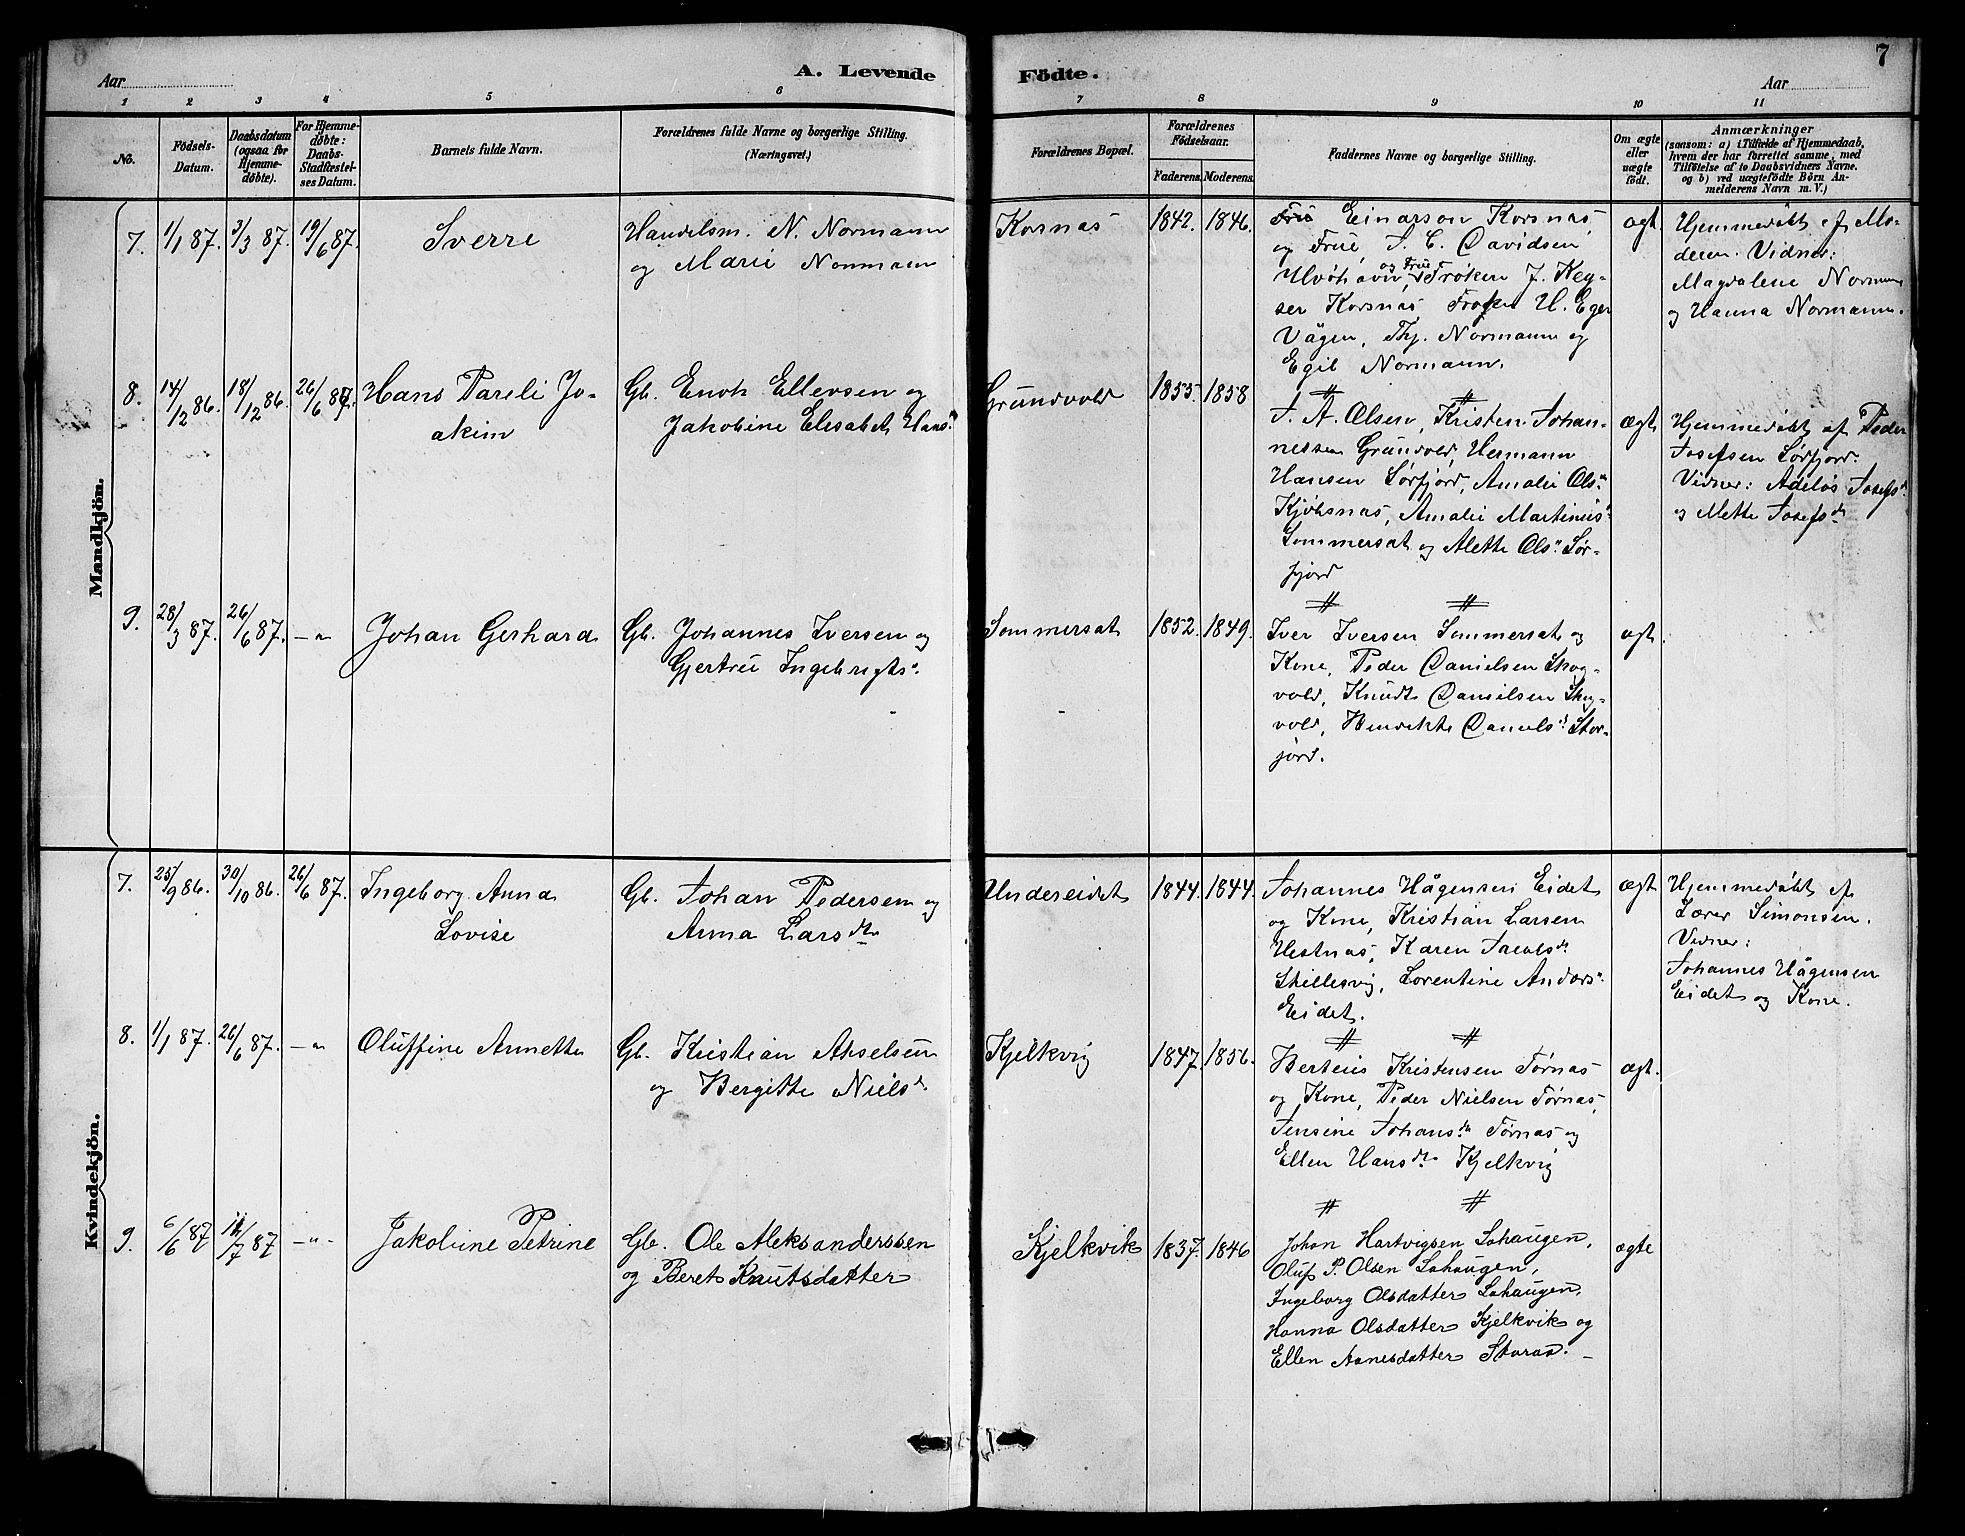 7
Aar
A. Levende
Födte.
Aar
1 2 3 4 5 6 7 8 9 10 11
No.
Födsels-
Datum.
Daabsdatum
(ogsaa for
Hjemme-
døbte).
For Hjemme-
døbte:
Daabs-
Stadfæstel-
ses Datum.
Barnets fulde Navn.
Forældrenes fulde Navne og borgerlige Stilling.
(Næringsvei.)
Forældrenes Bopæl.
Forældrenes
Födselsaar.
Faderens. Moderens.
Faddernes Navne og borgerlige Stilling.
Om ægte
eller
uægte
födt.
Anmærkninger
(saasom: a) i Tilfælde af Hjemmedaab,
hvem der har forrettet samme, med
Tilföielse af to Daabsvidners Navne.
og b) ved uægtefödte Börn An-
melderens Navn m. V.)
Mandkjön.
7. 1/1 87. 3/3 87. 19/6 87.
Sverre
Handelsm. N. Normann
og Marie Normann
Korsnas
1842. 1846.
Frue Einarson Korsnas
og Frue, S. C. Davidsen
Ulvöhavn, og Frue, Fröken J. Key-
ser Korsnas, Froken H. Eger
Vågen, Thj. Normann og
Egil Normann.
ægt
Hjemmedöbt af Mo-
deren. Vidner:
Magdalene Normann
og Hanna Normann.
8. 14/12 86. 18/12 86. 26/6 87.
Hans Pareli Jo-
akim
Gb. Enok Ellevsen og
Jakobine Elisabet Hans.d
Grundvold
1855. 1858
J. A. Olsen, Kristen Johan-
nessen Grundvold, Hermann
Hansen Sørfjord, Amalie Ols.d
Kjöbsnas, Amalie Martinus.d
Sommersat og Alette Ols.d Sør-
fjord
ægt
Hjemmedöbt af Peder
Josefsen Sørfjord.
Vidner: Adelös Josefs.d
og Mette Josefsd
9. 28/3 87. 26/6 87. —„
Johan Gerhard
Gb. Johannes Iversen og
Gjertru Ingebrigts.d
Sommersat
1852. 1849.
Iver Iversen Sommersat og
Kone, Peder Danielsen Skog-
vold, Knudt Danielsen Skog-
vold, Hendrikte Daniels.d Stor-
fjord.
ægt
Kvindekjön.
7. 25/9 86. 30/10 86. 26/6 87.
Ingeborg Anna
Lovise
Gb. Johan Pedersen og
Anna Larsdtr
Undereidet
1844. 1844.
Johannes Hågensen Eidet
og Kone, Kristian Larsen
Hestnas, Karen Jacobsd
Skillesvig, Lorentine Anders.d
Eidet.
ægt
Hjemmedöbt af
Lærer Simonsen.
Vidner:
Johannes Hågensen
Eidet og Kone.
8. 1/1 87. 26/6 87. —„
Oluffine Annette
Gb. Kristian Akselsen
og Bergitte Nielsd
Kjelkvig
1847. 1856.
Berteus Kristensen Törnas
og Kone, Peder Nielsen Törnas,
Jensine Johansd Törnas og
Ellen Hansdtr Kjelkvig
ægt.
9. 6/6 87 11/7 87 —„—
Jakobine Petrine
Gb. Ole Aleksanderssen
og Beret Knutsdatter
Kjelkvik
1837. 1846
Johan Hartvigsen Lohaugen,
Oluf P. Olsen Lohaugen,
Ingeborg Olsdatter Lohaugen,
Hanna Olsdatter Kjelkvik og
Ellen Aanesdatter Storaa.
ægte